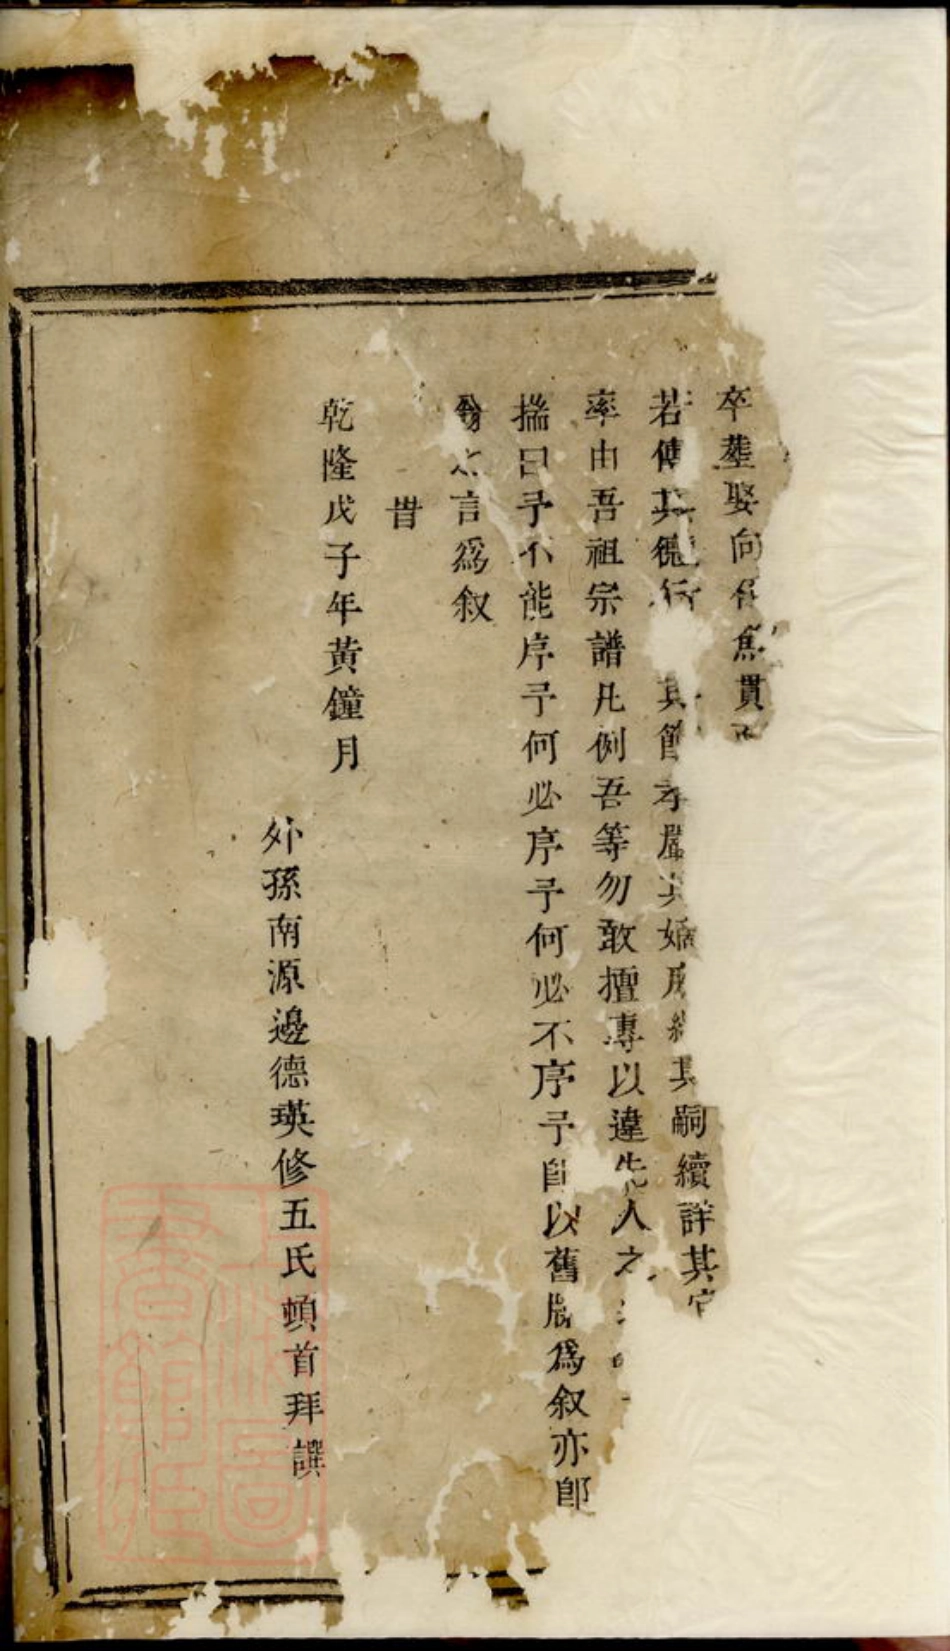 卒塟娶向俱焦貫
若傅其德行其節孝嚴其嫡庶繼其嗣續詳其它
率由吾祖宗譜凡例吾等勿敢擅專以違先人之
揣曰予不能序予何必序予何必不序予卽以舊牒爲叙亦卽
翁之言爲叙
旹
乾隆戊子年黃鐘月
外孫南源邊德瑛修五氏頓首拜譔